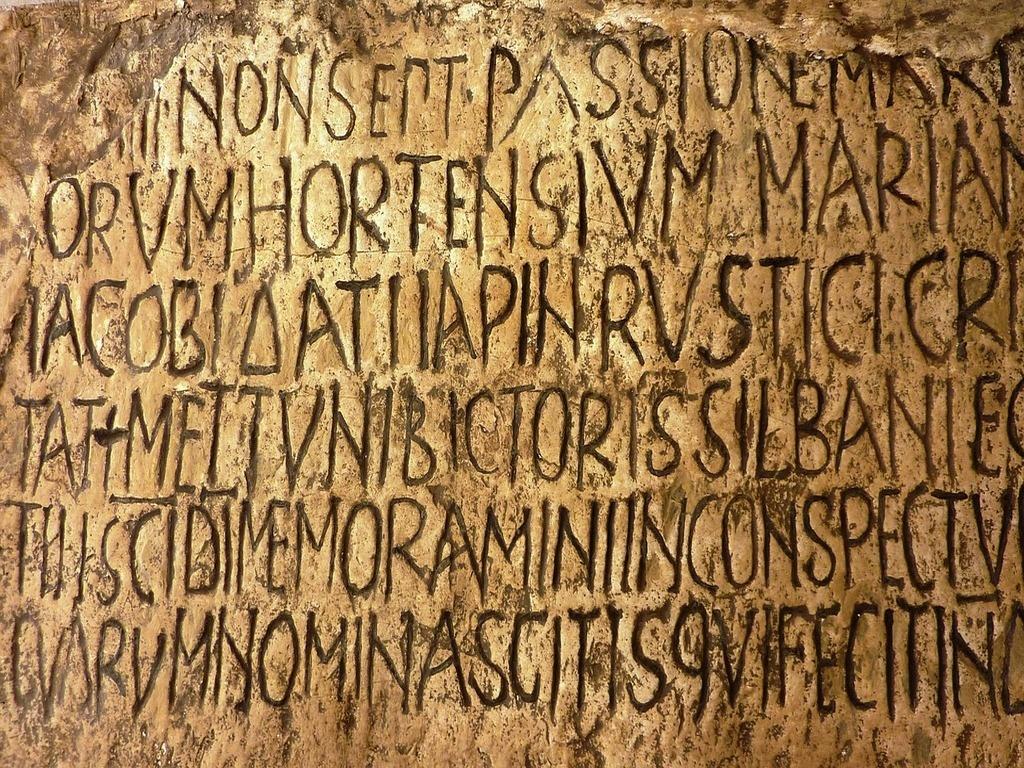 NON SEPT PASSIONE MART
ORVM HORTENSIVM MARIAN
IACOBI DATI IAPIN RVSTICI CRI
TATI METTVNI BICTORIS SILBANI EG
TII SCI DI MEMORAMINI IN CONSPECTV
QVARVM NOMINA SCITIS QVI FECIT IND